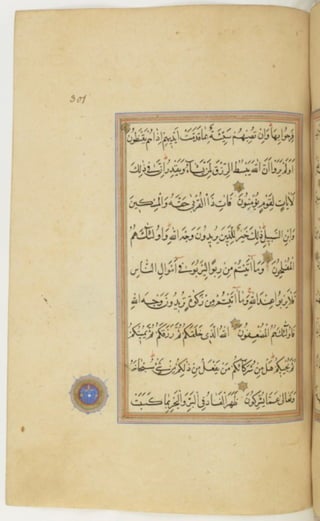 301
فرحوا بها وإن تصبهم سيئة بما قدمت أيديهم إذا هم يقنطون
أولم يروا أن الله يبسط الرزق لمن يشاء ويقدر إن في ذلك
لآيات لقوم يؤمنون فآت ذا القربى حقه والمسكين
وابن السبيل ذلك خير للذين يريدون وجه الله وأولئك هم
المفلحون وما آتيتم من ربوا ليربوا في أموال الناس
فلا يربوا عند الله وما آتيتم من زكوة تريدون وجه الله
فأولئك هم المضعفون الله الذي خلقكم ثم رزقكم ثم يميتكم
ثم يحييكم هل من شركائكم من يفعل من ذلكم من شيء سبحانه
وتعالى عما يشركون ظهر الفساد في البر والبحر بما كسبت